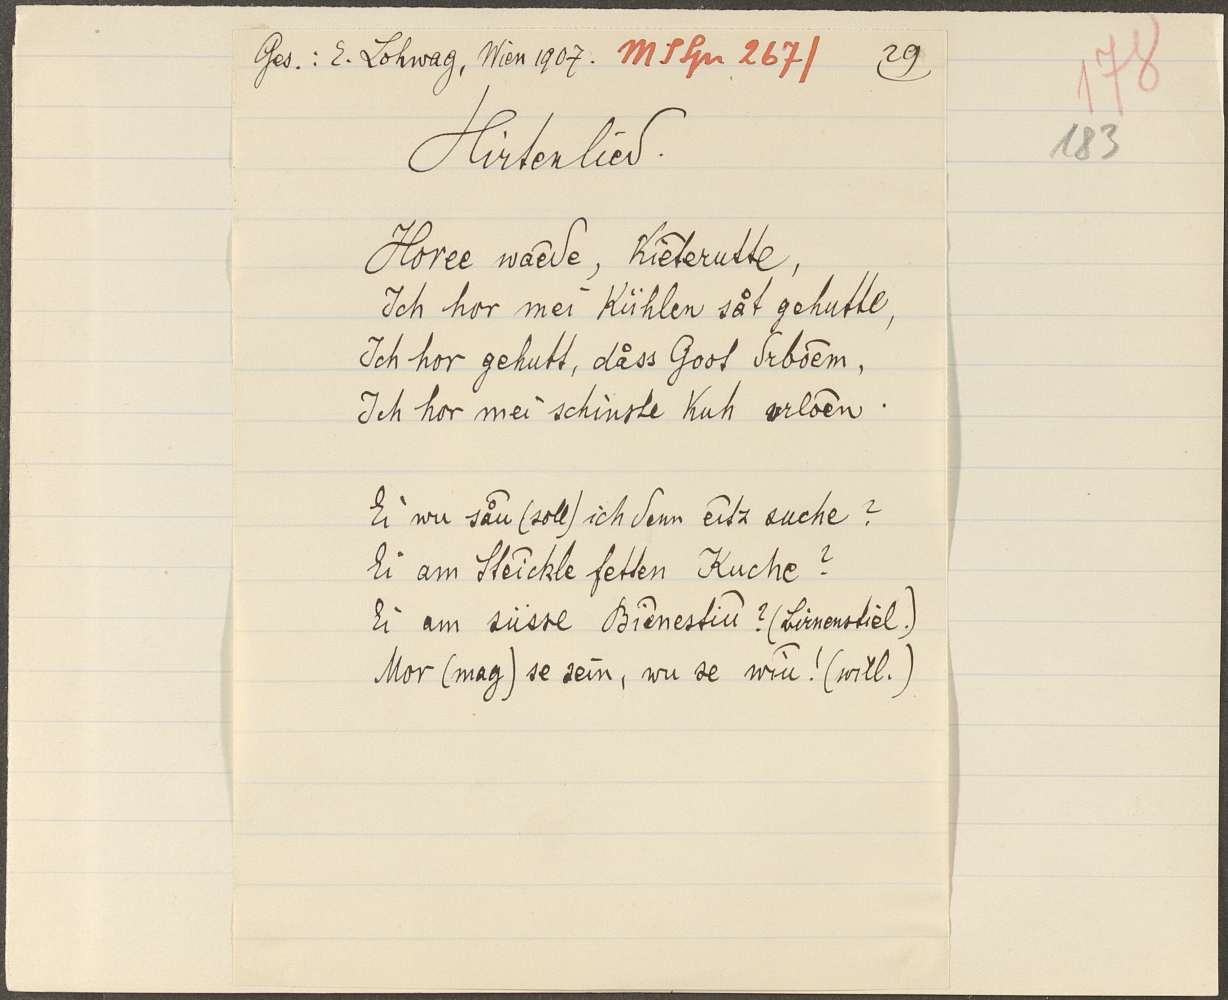 Ges.: E. Lohwag, Wien 1907. 267/ 29
178
183
Hirtenlied.
Horee waēde, Kiēterutte,
Ich hor mei Kühlen såt gehutte,
Ich hor gehutt, dåss Goot drbōem,
Ich hor mei schinste Kuh vrlōen.
Ei wu såū (soll) ich denn eitz suche?
Ei am Steickle fetten Kuche?
Ei am süsse Biēnestiū? (Birnenstiel.)
Mor (mag) se sein, wu se wīu! (will.)